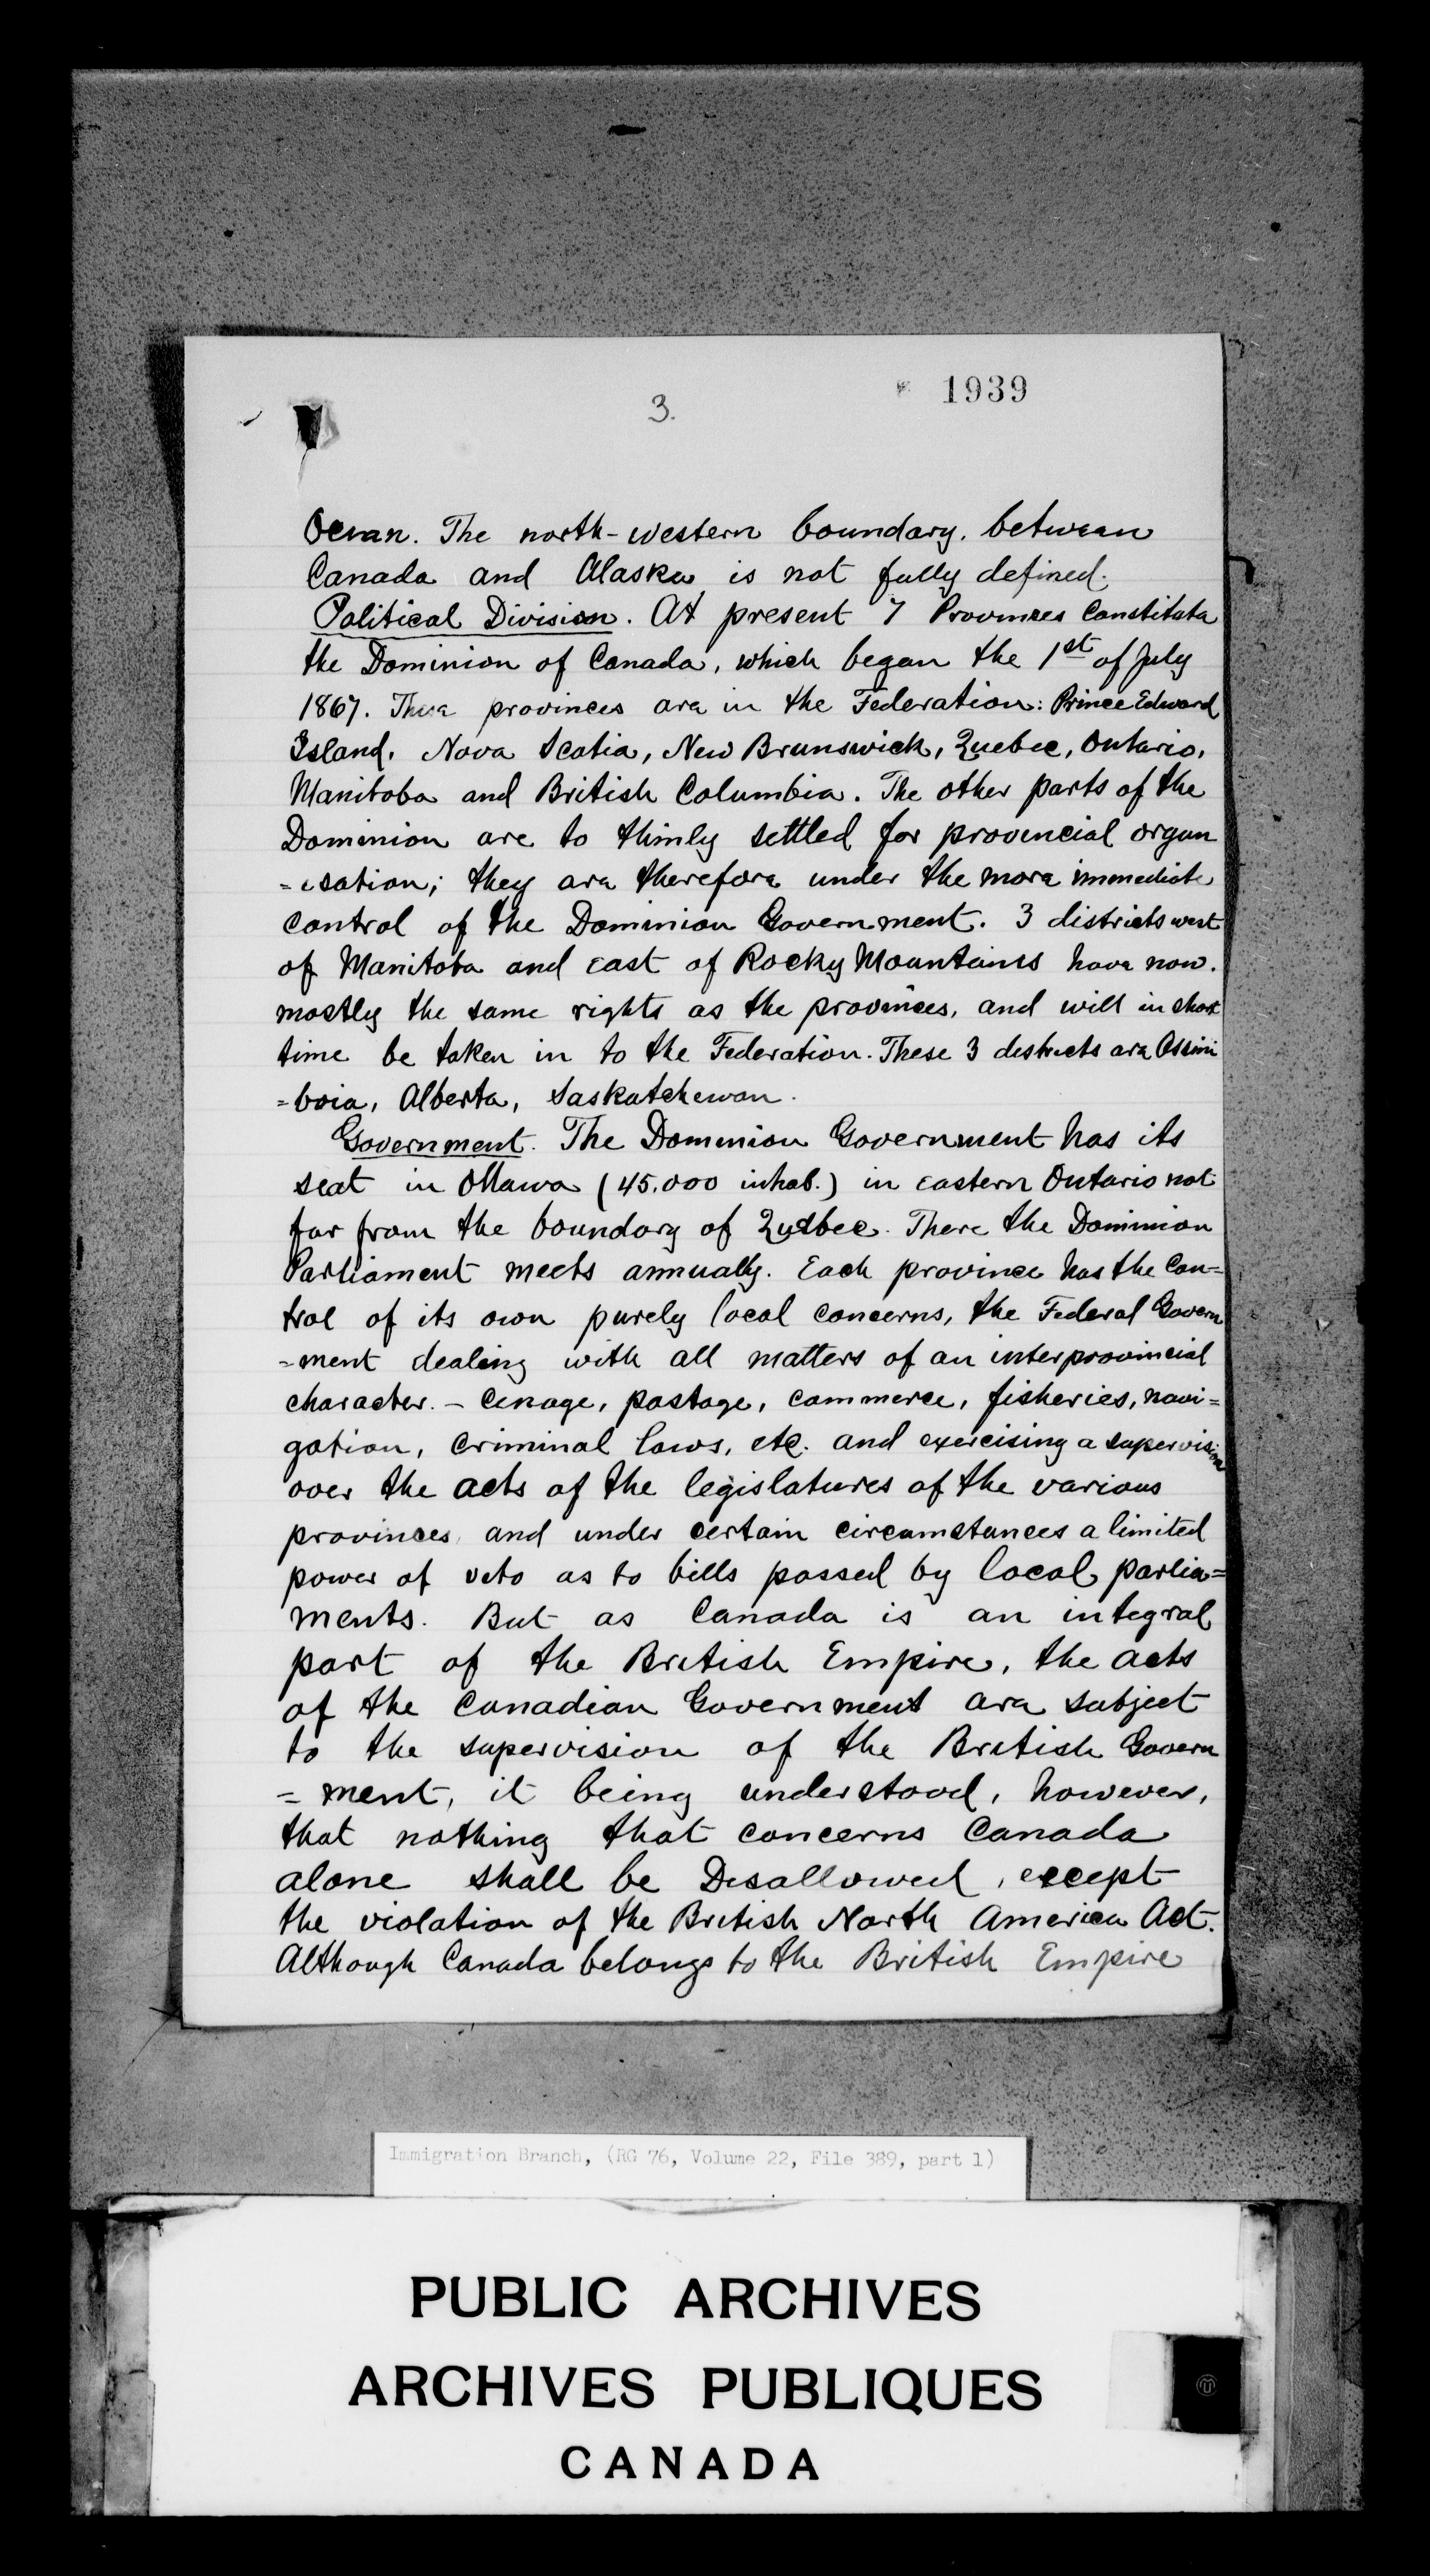 1939
3.
Ocean. The north-western boundary, between
Canada and Alaska is not fully defined.
Political Division. At present 7 Provinces Constitute
the Dominion of Canada, which began the 1st of July
1867. These provinces are in the Federation: Prince Edward
Island, Nova Scotia, New Brunswick, Quebec, Ontario,
Manitoba and British Columbia. The other parts of the
Dominion are to thinly settled for provincial organ
=isation; they are therefore under the more immediate
control of the Dominion Government. 3 districts west
of Manitoba and east of Rocky Mountains have now.
mostly the same rights as the provinces, and will in short
time be taken in to the Federation. These 3 destricts are Assini
=boia, Alberta, Saskatchewan.
Government. The Dominion Government has its
seat in Ottawa (45.000 inhab.) in eastern Ontario not
far from the boundary of Quebec. There the Dominion
Parliament meets annually. Each province has the Con=
trol of its own purely local concerns, the Federal Govern
=ment dealing with all matters of an interprovincial
character. – Cenage, postage, commerce, fisheries, navi=
gation, criminal laws, etc. and exercising a supervision
over the acts of the legislatures of the various
provinces, and under certain circumstances a limited
power of veto as to bills passed by local parlia=
ments. But as Canada is an integral
part of the British Empire, the acts
of the Canadian Government are subject
to the supervision of the British Govern
=ment, it being understood, however,
that nothing that concerns Canada
alone shall be Disallowed, except
the violation of the British North America Act.
Although Canada belongs to the British Empire
Immigration Branch, (RG 76, Volume 22, File 389, part 1)
PUBLIC ARCHIVES
ARCHIVES PUBLIQUES
CANADA